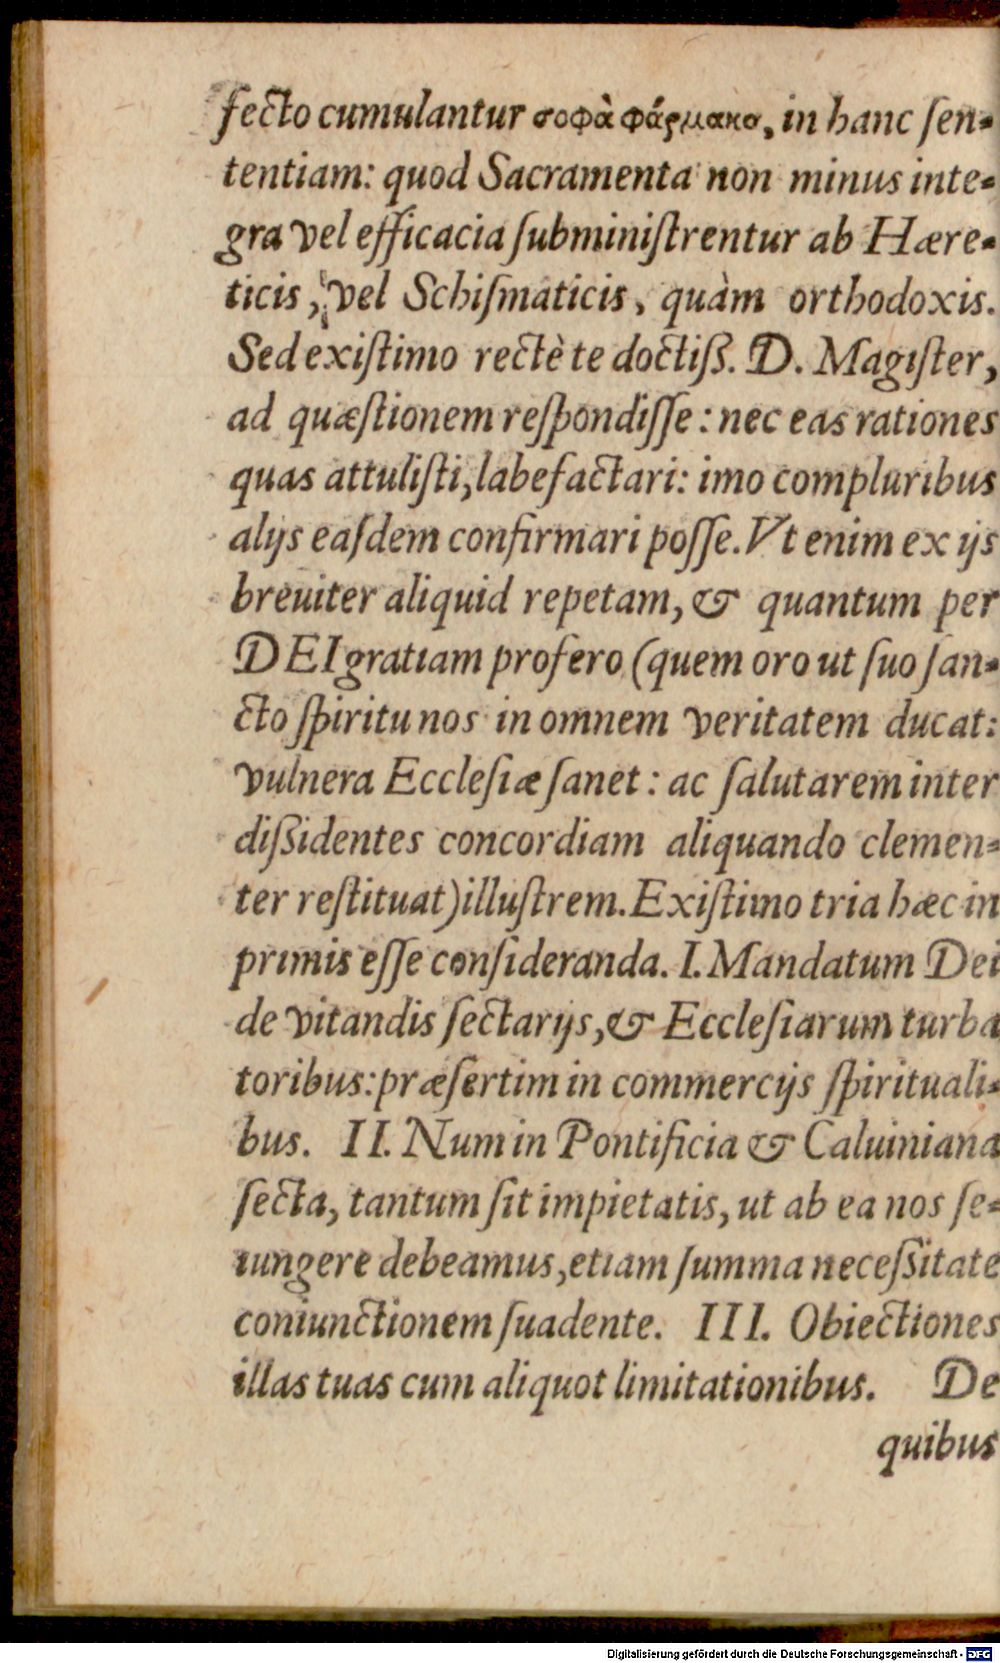 fecto cumulantur σοφὰ φάρμακα, in hanc ſen-
tentiam: quod Sacramenta non minus inte-
gra vel efficacia ſubminiſtrentur ab Hære-
ticis, vel Schiſmaticis, quàm orthodoxis.
Sed exiſtimo rectè te doctiß. D. Magiſter,
ad quæſtionem reſpondiſſe: nec eas rationes
quas attuliſti, labefactari: imo compluribus
alijs eaſdem confirmari poſſe. Vt enim ex ijs
breuiter aliquid repetam, & quantum per
DEI gratiam profero (quem oro ut ſuo ſan-
cto ſpiritu nos in omnem veritatem ducat:
vulnera Eccleſiæ ſanet: ac ſalutarem inter
dißidentes concordiam aliquando clemen-
ter reſtituat) illuſtrem. Exiſtimo tria hæc in
primis eſſe conſideranda. I. Mandatum Dei
de vitandis ſectarijs, & Eccleſiarum turba
toribus: præſertim in commercijs ſpirituali-
bus. II. Num in Pontificia & Caluiniana
ſecta, tantum ſit impietatis, ut ab ea nos ſe-
iungere debeamus, etiam ſumma neceßitate
coniunctionem ſuadente. III. Obiectiones
illas tuas cum aliquot limitationibus. De
quibus
Digitalisierung gefördert durch die Deutsche Forschungsgemeinschaft - DFG